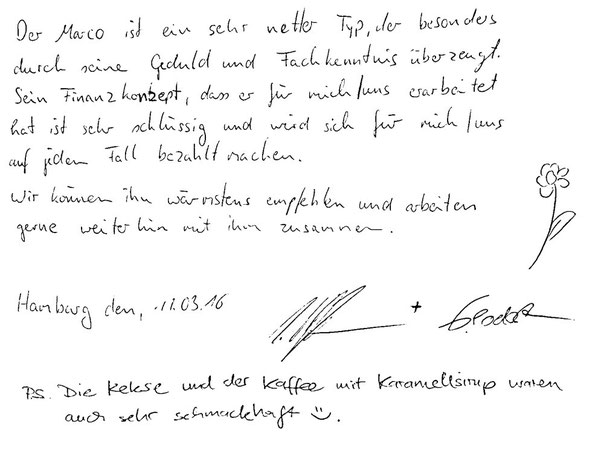 Der Marco ist ein sehr netter Typ, der besonders
durch seine Geduld und Fachkenntnis überzeugt.
Sein Finanzkonzept, dass er für mich/uns erarbeitet
hat ist sehr schlüssig und wird sich für mich/uns
auf jeden Fall bezahlt machen.
Wir können ihn wärmstens empfehlen und arbeiten
gerne weiterhin mit ihm zusammen.
Hamburg den, 11.03.16 +
P.S. Die Kekse und der Kaffee mit Karamellsirup waren
auch sehr schmackhaft ☺.